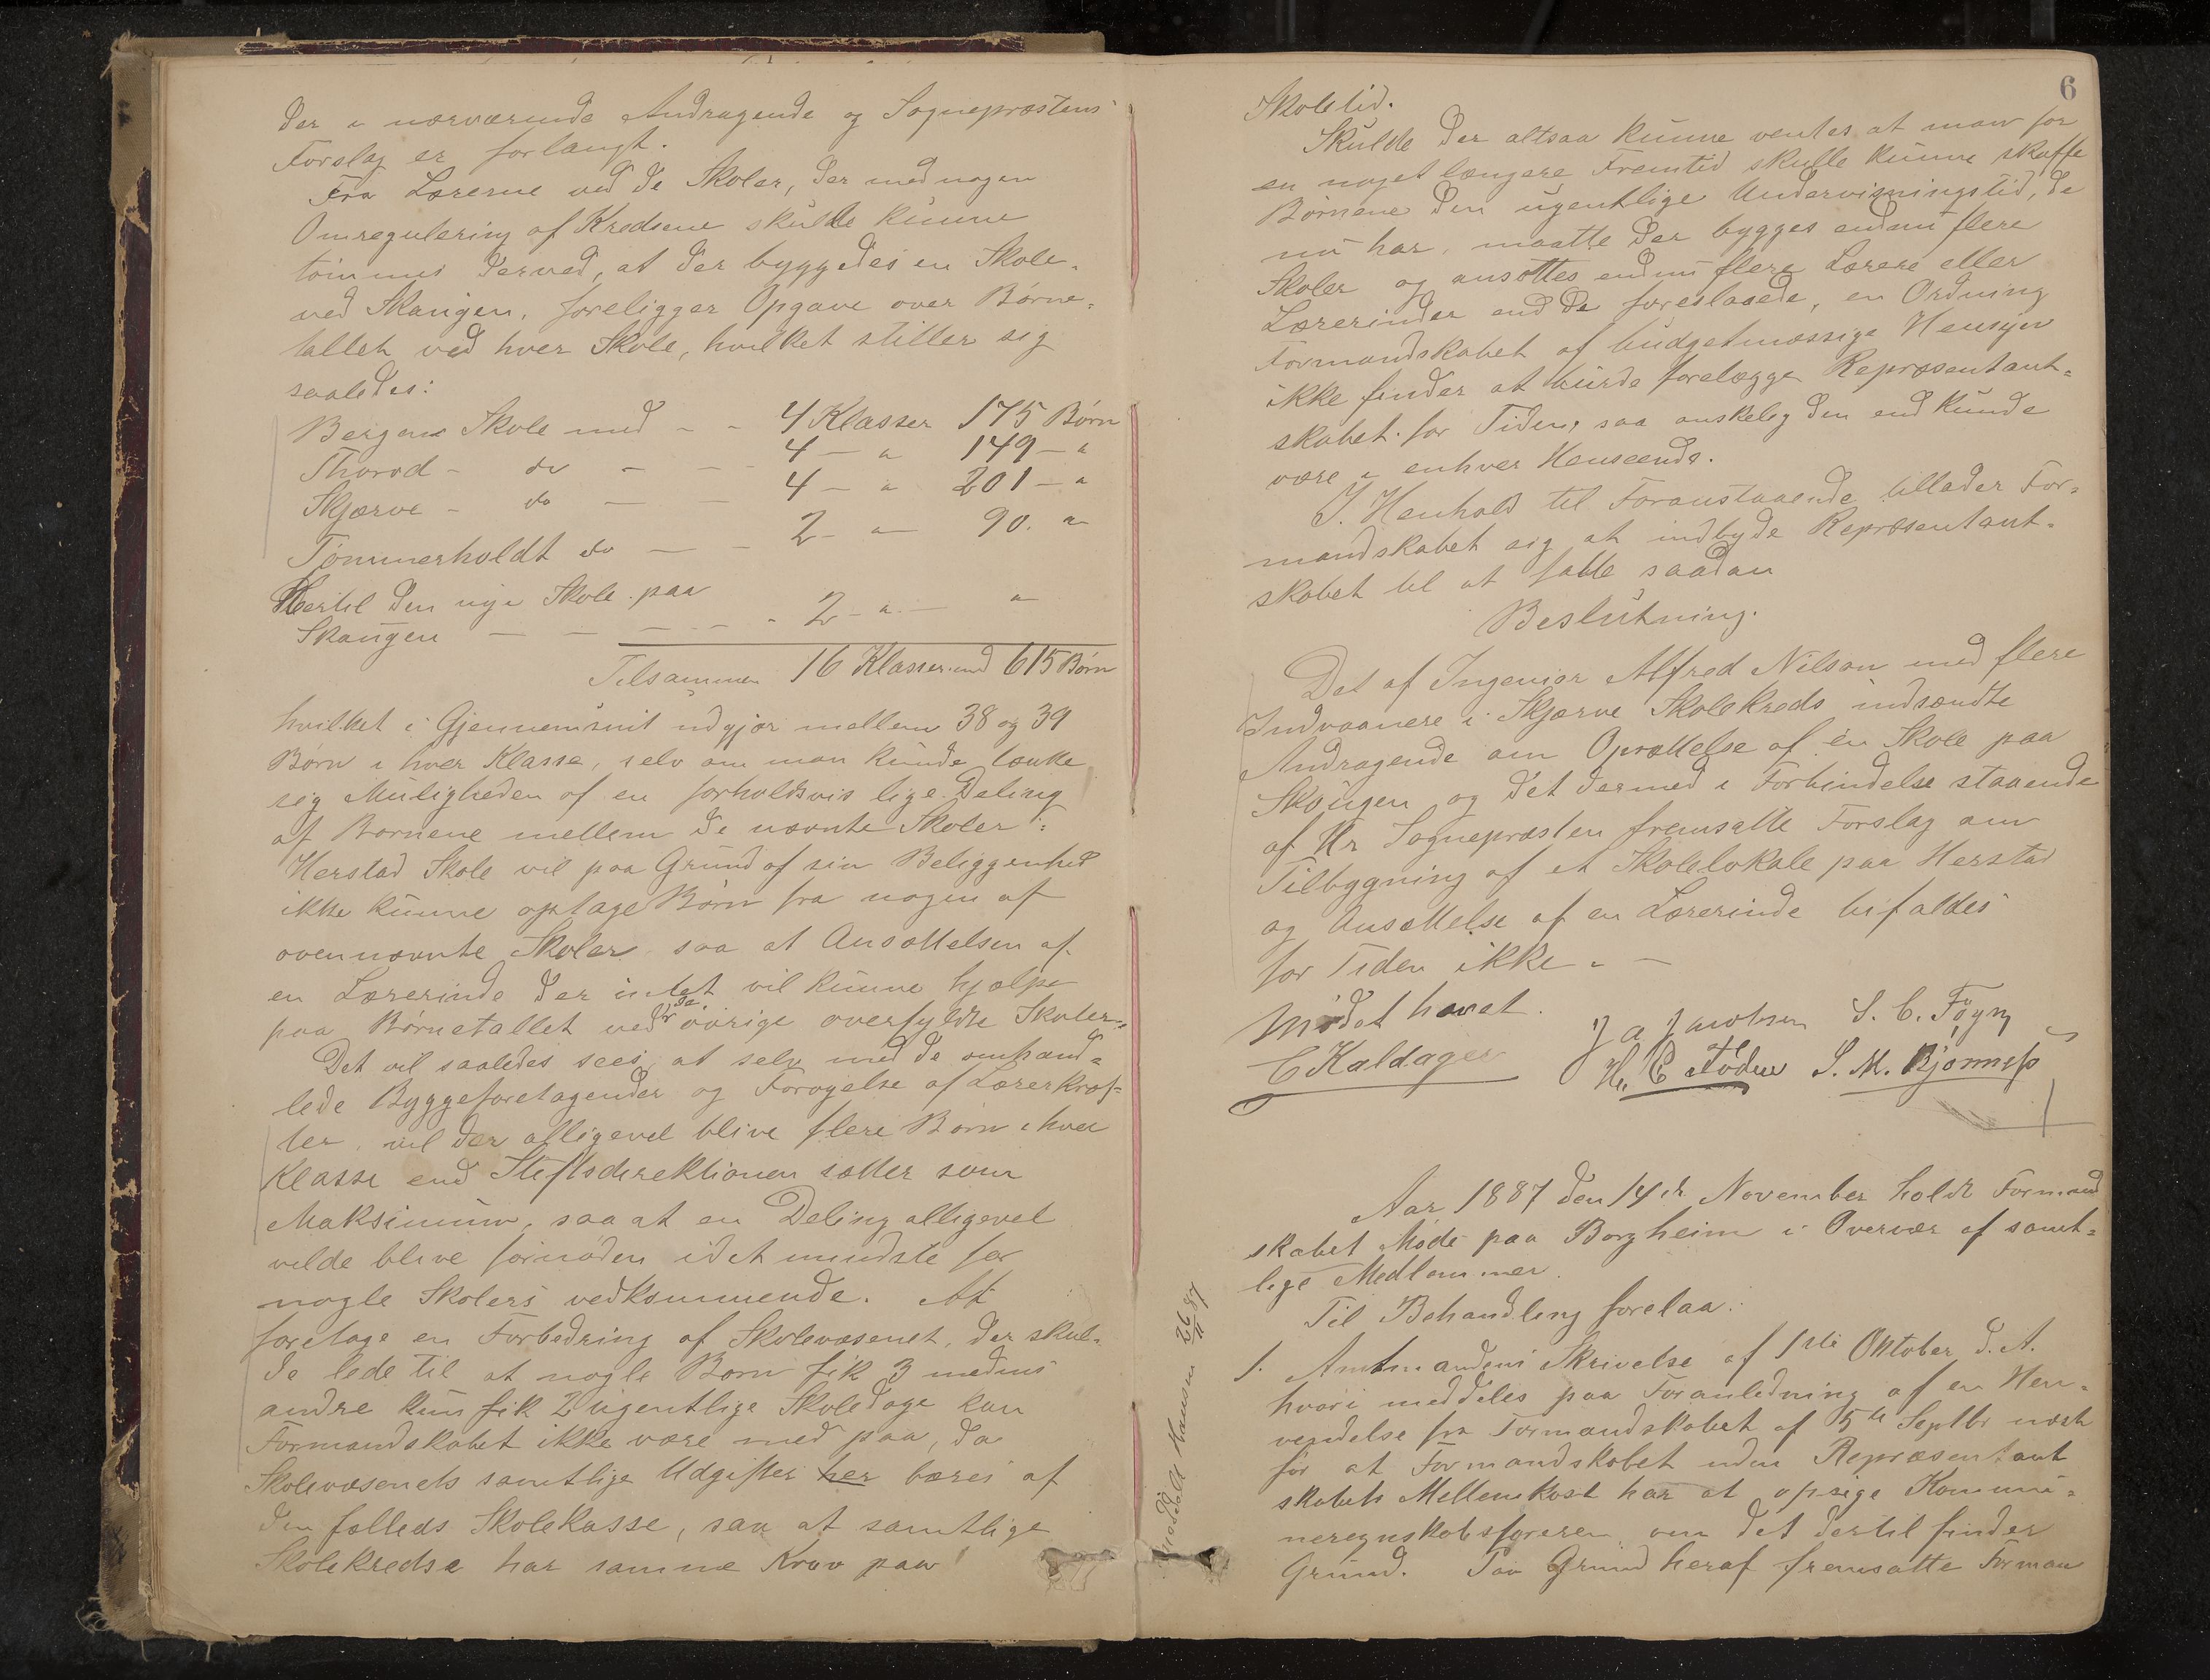 der i nærværende Andragende og Sognepræstens
Forslag er forlangt.
Fra Lærerne ved de Skoler, der med nogen
Omregulering af Kredsene skulde kunne
tömmes derved, at der byggedes en Skole
ved Skaugen, foreligger Opgave over Börne-
tallet ved hver Skole, hvilket stiller sig
saaledes:
Bergans Skole med - - 4 Klasser 175 Börn
Thorød - do - - 4 - " 149 - "
Skjærve - do - - 4 - " 201 - "
Tömmerholdt do - - 2 - " 90. "
Hertil den nye Skole paa
Skaugen - - - - - 2 - " - "
Tilsammen 16 Klasser med 615 Börn
hvilket i Gjennemsnit udgjør mellem 38 og 39
Börn i hver Klasse, selv om man kunde tænke
sig Muligheden af en forholdsvis lige Deling
af Børnene mellem de nævnte Skoler.
Herstad Skole vil paa Grund af sin Beliggenhed
ikke kunne optage Börn fra nogen af
ovennævnte Skoler saa at Ansættelsen af
en Lærerinde der intet vil kunne hjælpe
paa Börnetallet ved de övrige overfyldte Skoler.
Det vil saaledes sees, at selv med de omhand-
lede Byggeforetagender og Forøgelse af Lærerkræf-
ter, vil der alligevel blive flere Börn i hver
Klasse end Stiftsdirektionen sætter som
Maksimum, saa at en Deling alligevel
vilde blive fornøden idet mindste for
nogle Skolers vedkommende. At
foretage en Forbedring af Skolevæsenet, der skul-
de lede til at nogle Børn fik 3 medens
andre kun fik 2 ugentlige Skoledage kan
Formandskabet ikke være med paa, da
Skolevæsenets samtlige Udgifter her bæres af
den fælleds Skolekasse, saa at samtlige
Skolekredse har samme Krav paa
6
Skoletid.
Skulde der altsaa kunne ventes at man for
en noget længere Fremtid skulle kunne skaffe
Børnene den ugentlige Undervisningstid, de
nu har, maatte der bygges endnu flere
Skoler og ansættes endnu flere Lærere eller
Lærerinder end de foreslaaede, en Ordning
Formandskabet af budgetmæssige Hensyn
ikke finder at burde forelægge Repræsentant-
skabet for Tiden, saa ønskelig den end kunde
være i enhver Henseende.
I Henhold til Foranstaaende tillader For-
mandskabet sig at indbyde Repræsentant-
skabet til at fatte saadan
Beslutning.
Det af Ingeniør Alfred Nilson med flere
Indvaanere i Skjærve Skolekreds indsendte
Andragende om Oprettelse af en Skole paa
Skaugen og det dermed i Forbindelse staaende
af Hr Sognepræsten fremsatte Forslag om
Tilbygning af et Skolelokale paa Herstad
og Ansættelse af en Lærerinde bifaldes
for Tiden ikke. -
Mödet hævet.
J A Jacobsen S. C. Föyn
C Kaldager H. C. S. M. Bjönness
Aar 1887 den 14de November holdt Formand
skabet Møde paa Borgheim i Overvær af samt-
lige Medlemmer.
Til Behandling forelaa:
1. Amtmandens Skrivelse af 1ste Oktober d. A.
hvori meddeles paa Foranledning af en Hen-
vendelse fra Formandskabet af 5te Septbr næst
før at Formandskabet uden Repræsentant
skabets Mellemkost har at opsige Kommu-
neregnskabsføreren om det dertil finder
Grund. Paa Grund heraf fremsatte Forman
Hansen 26/11 87